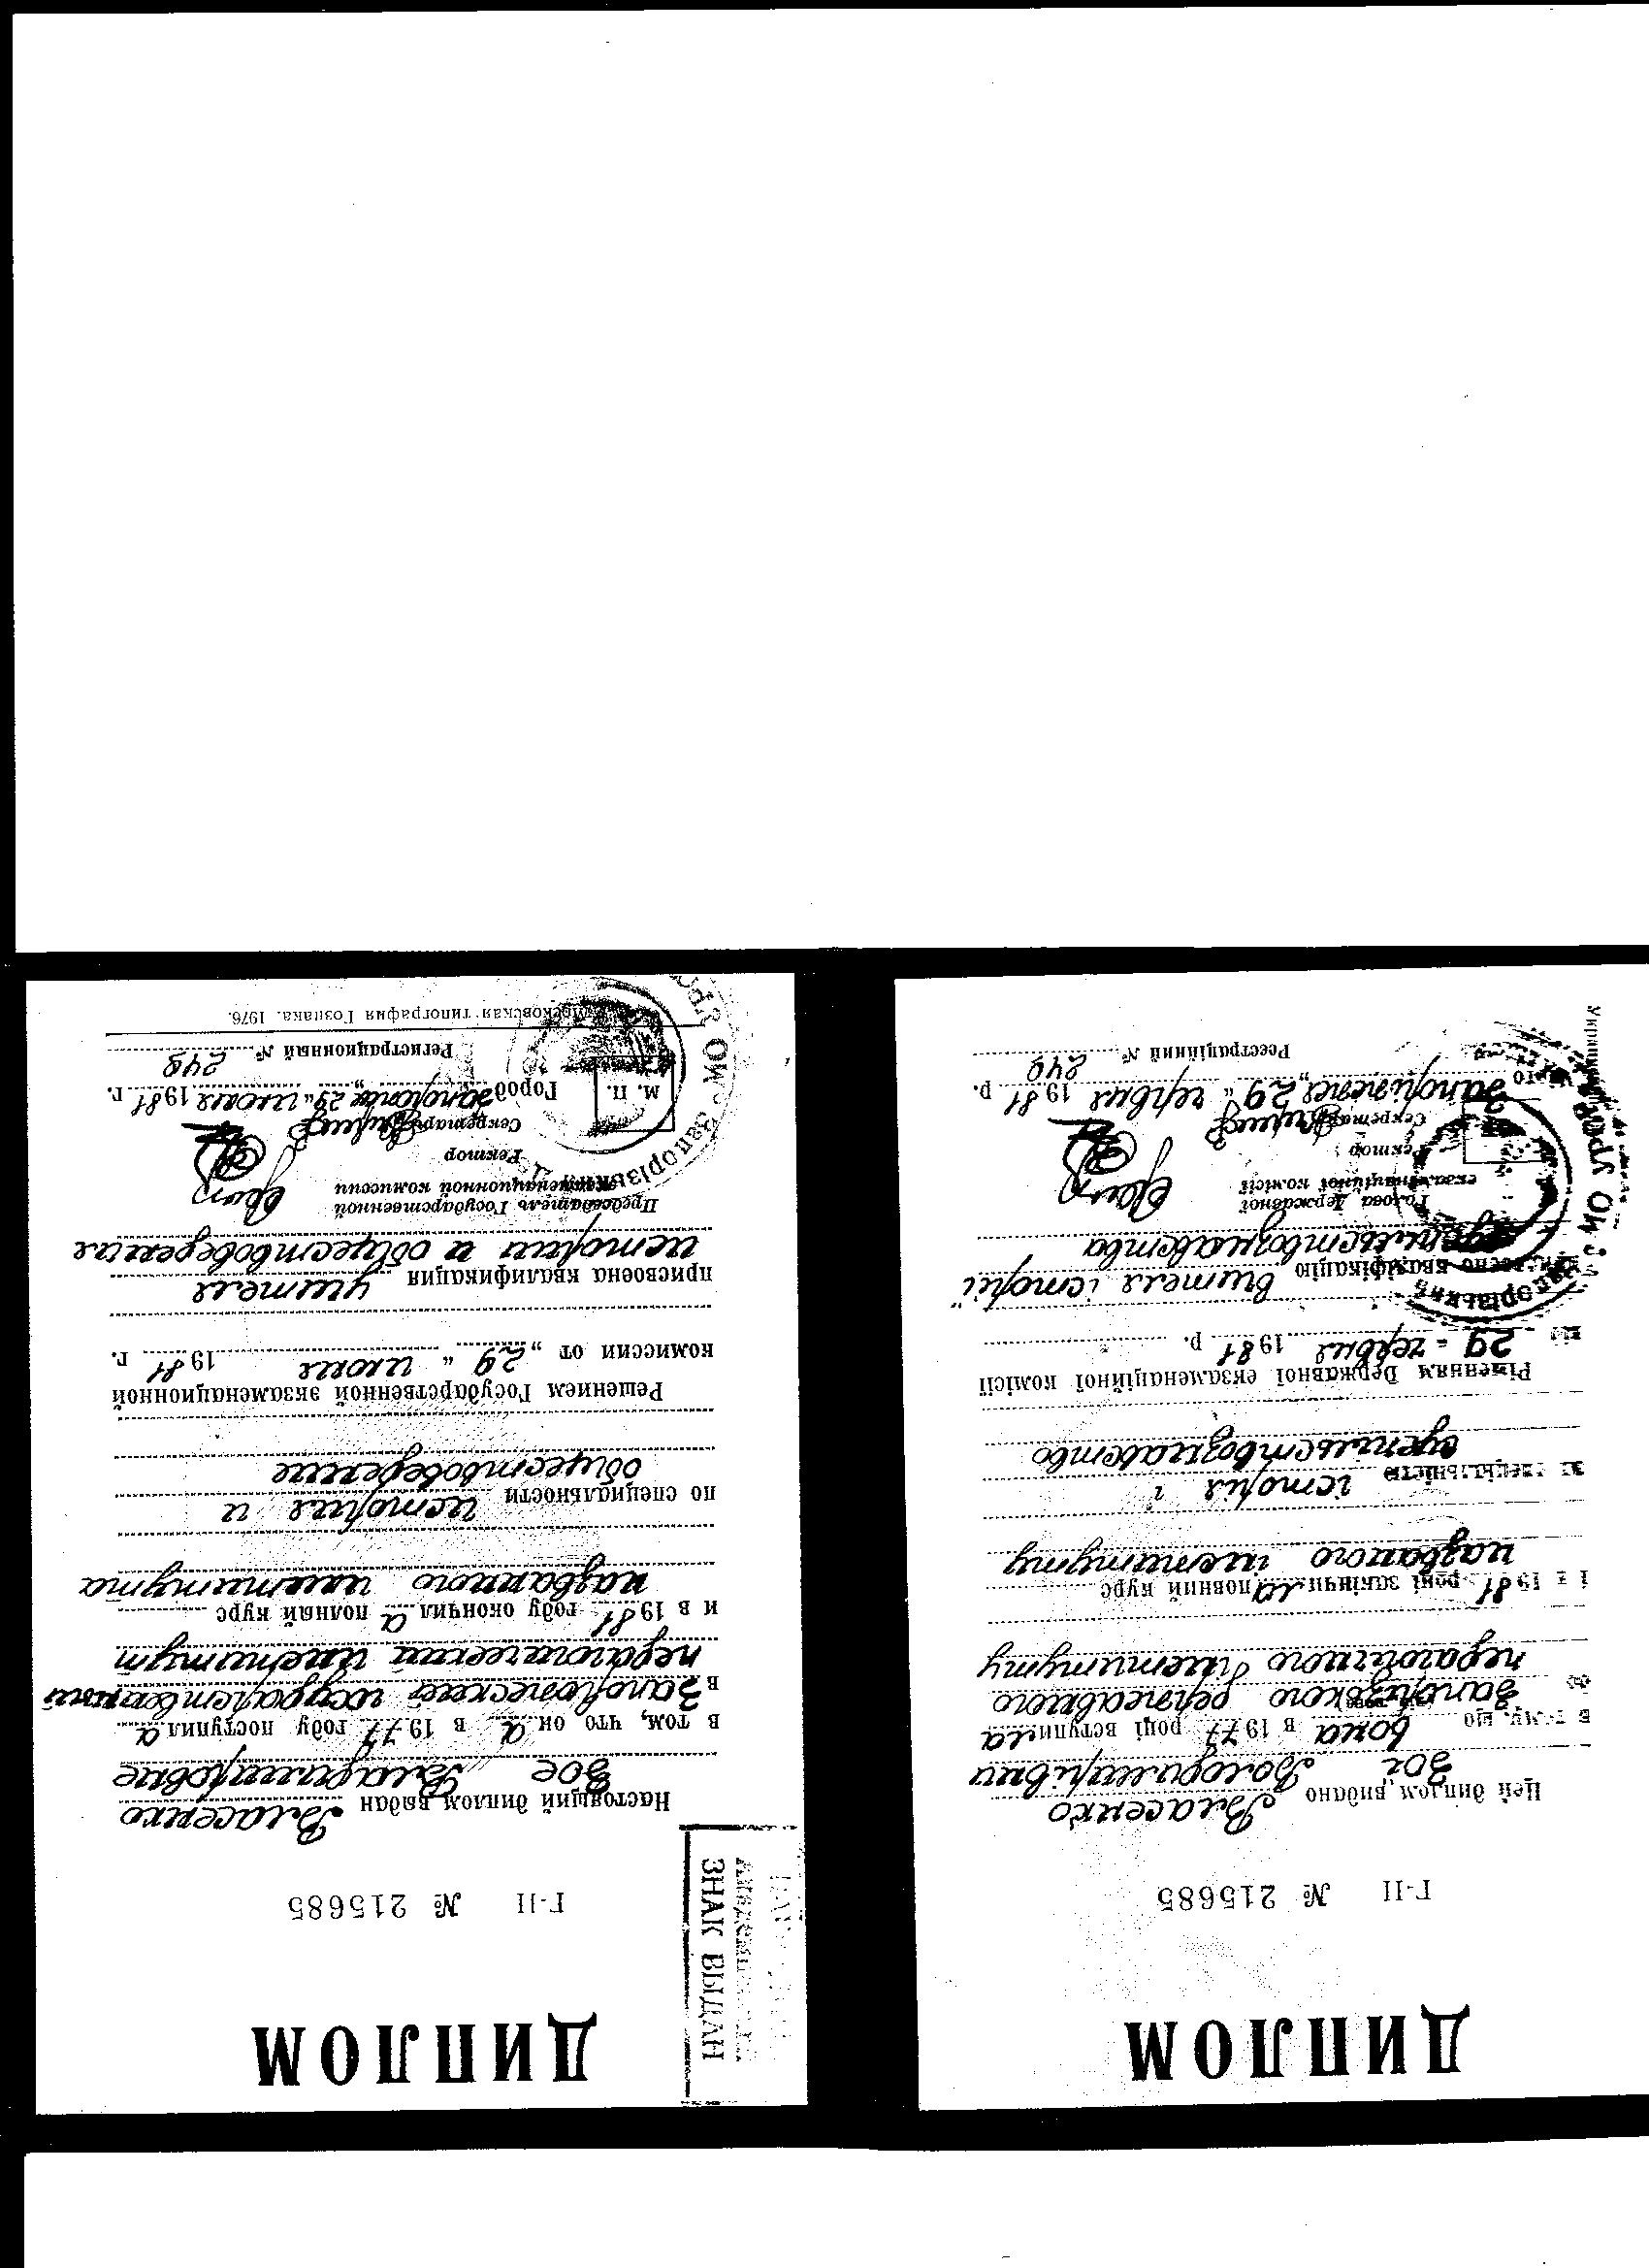 ДИПЛОМ
Г-II № 215685
Цей диплом видано Власенко
Зої Володимирівні
в тому, що вона в 1977 році вступила
до Запорізького державного
педагогічного інституту
і в 1981 році закінчила повний курс
названого інституту
за спеціальністю історія і
суспільствознавство
Рішенням Державної екзаменаційної комісії
від 29 червня 1981 р.
присвоєно кваліфікацію вчителя історії
суспільствознавства
Голова Державної
екзаменаційної комісії
Ректор
Секретар
Місто Запоріжжя „29“ червня 1981 р.
Реєстраційний № 240
ДИПЛОМ
ЗНАК ВЫДАН
Г-II № 215685
Настоящий диплом выдан Власенко
Зое Владимировне
в том, что она в 1977 году поступила
в Запорожский государственный
педагогический институт
и в 1981 году окончила полный курс
названного института
по специальности история и
обществоведение
Решением Государственной экзаменационной
комиссии от „29“ июня 1981 г.
присвоена квалификация учителя
истории и обществоведения
Председатель Государственной
экзаменационной комиссии
Ректор
Секретарь
М. П. Город Запорожье „29“ июня 1981 г.
Регистрационный № 240
Московская типография Гознака. 1976.